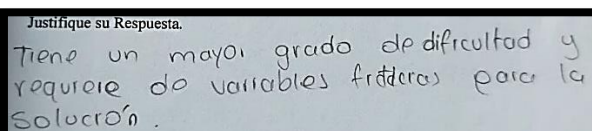 Justifique su Respuesta.
Tiene un mayor grado de dificultad y
requiere de variables para la
solución.